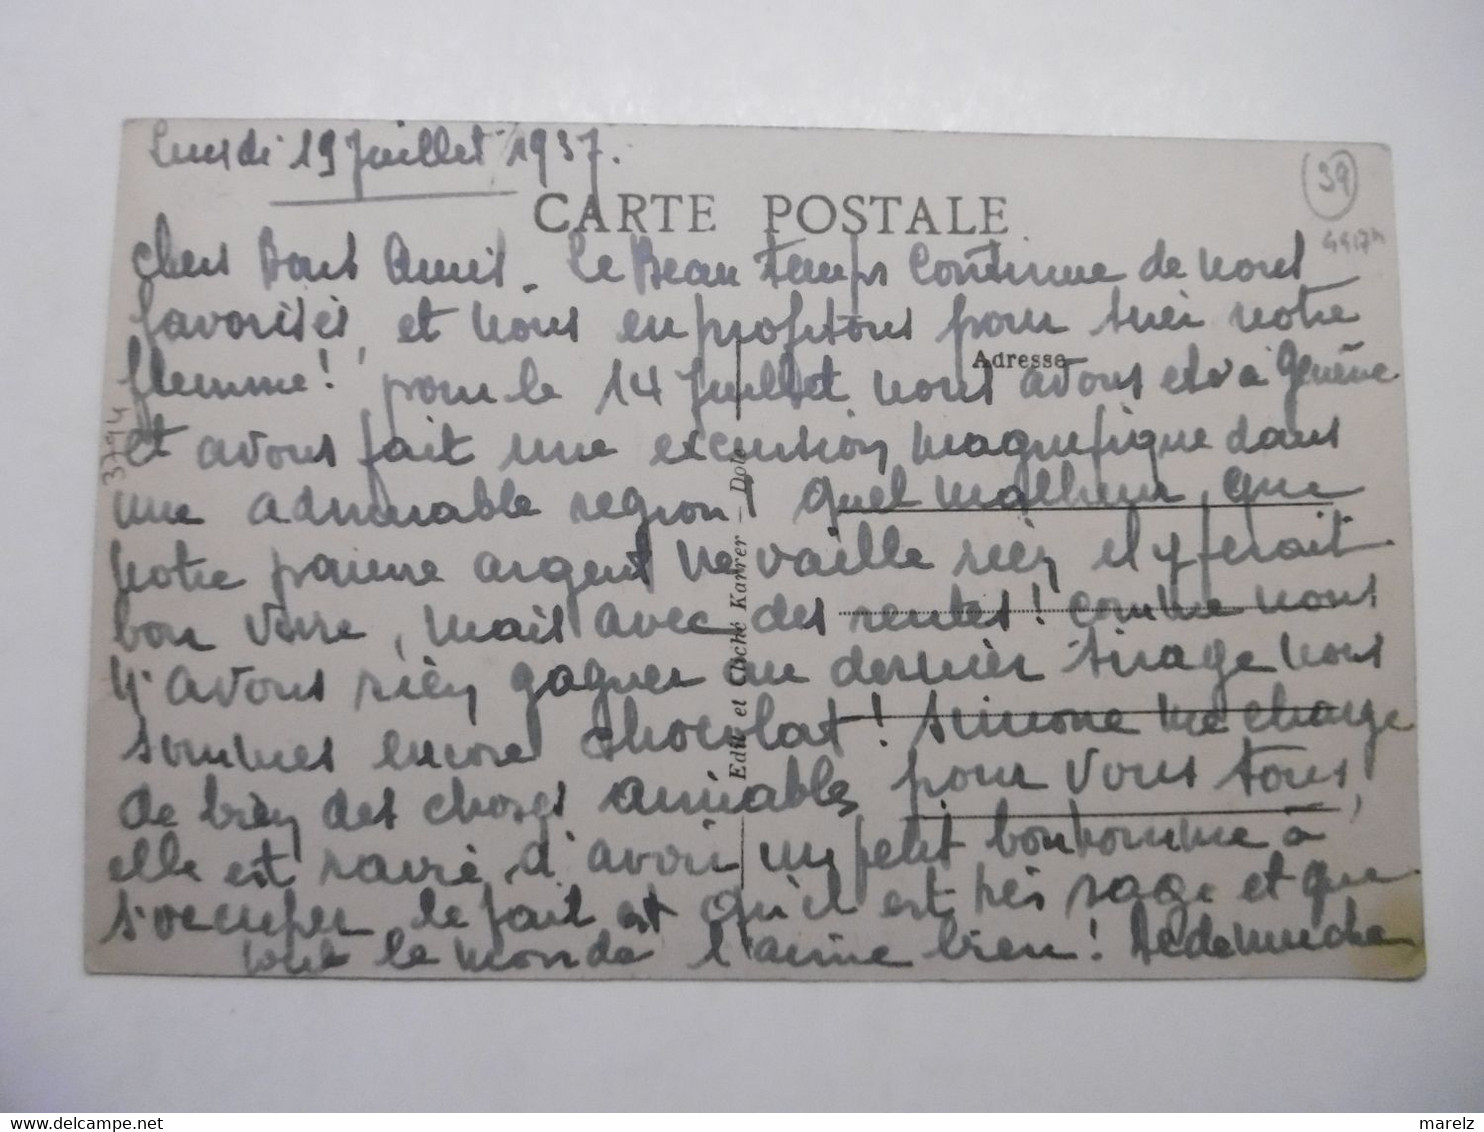 Lundi 19 Juillet 1937.
39
CARTE POSTALE
Chers Bons Amis. Le Beau temps continue de nous
favorisés, et nous en profitons pour tirer notre
Adresse
flemme! pour le 14 Juillet nous avons été à Genève
et avons fait une excursion magnifique dans
une admirable région! Quel malheur que
notre pauvre argent ne vaille rien il y ferait
bon vivre, mais avec des rentes! comme nous
n'avons rien gagner au dernier tirage nous
sommes encore chocolat! Simone me charge
de bien des choses aimables pour vous tous,
elle est ravie d'avoir un petit bonhomme à
s'occuper le fait est qu'il est très sage et que
tout le monde l'aime bien!
37914
Edit. et Cliché Karrer – Dole
marelz